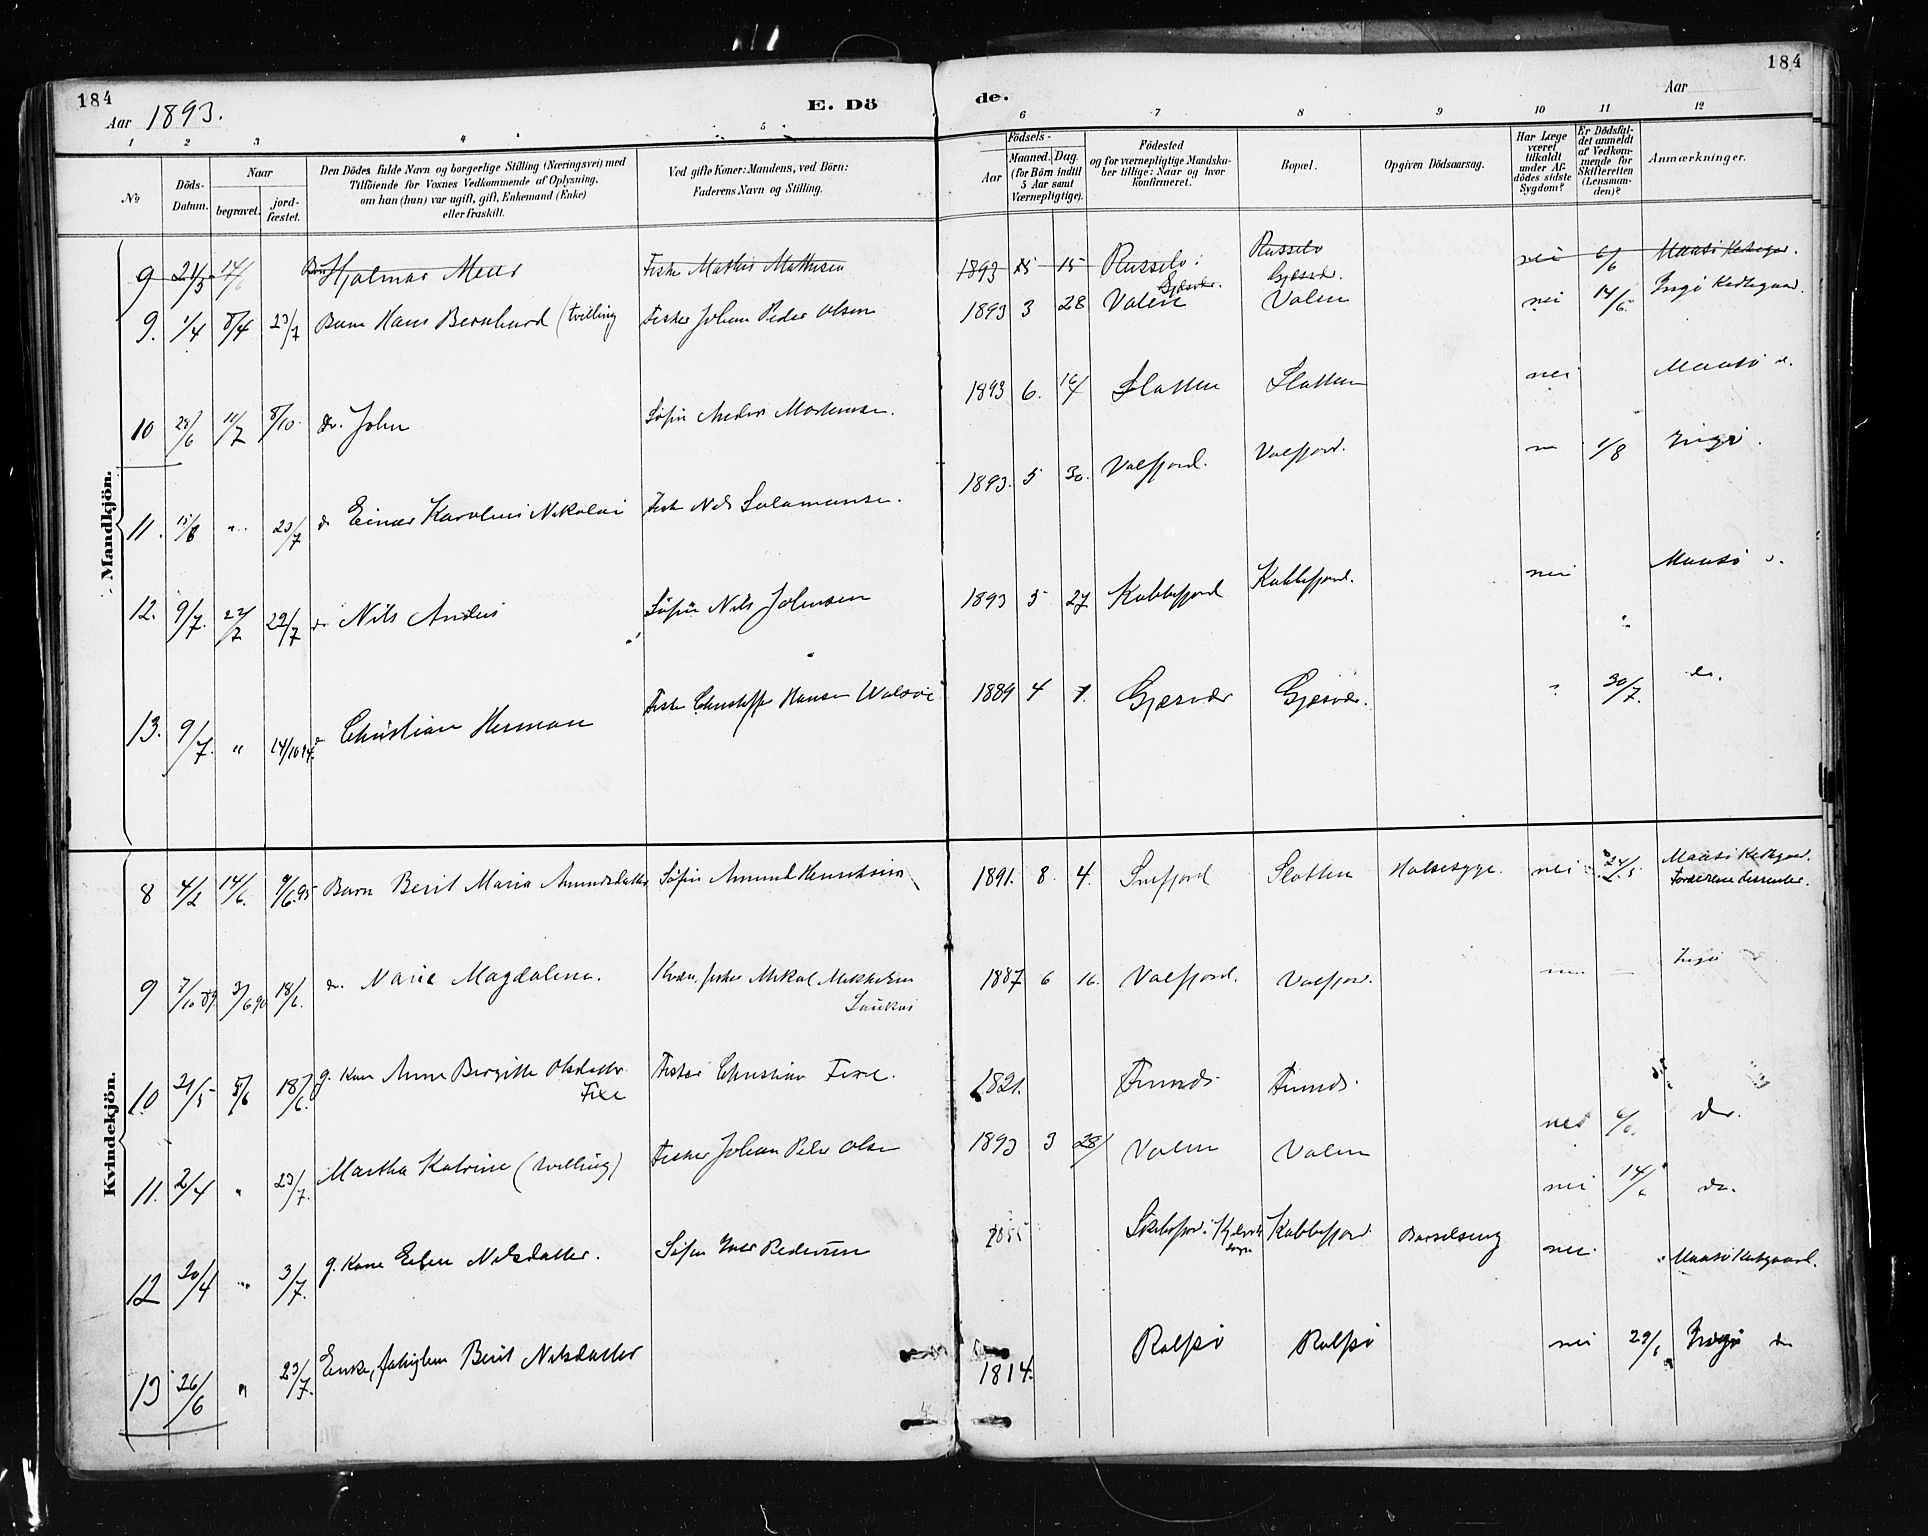 184
Aar 1893.
E. Dö
de.
Aar
184
1 2 3 4 5 6 7 8 9 10 11 12
№
Döds-Datum.
Naar
begravet.
jord-fæstet.
Den Dödes fulde Navn og borgerlige Stilling (Næringsvei) med
Tilföiende for Voxnes Vedkommende af Oplysning,
om han (hun) var ugift, gift, Enkemand (Enke)
eller fraskilt.
Ved gifte Koner: Mandens, ved Börn:
Faderens Navn og Stilling.
Födsels-
Aar
Maaned. Dag.
(for Börn indtil
5 Aar samt
Værnepligtige).
Födested
og for værnepligtige Mandska-
ber tillige: Naar og hvor
konfirmeret.
Bopæl.
Opgiven Dödsaarsag.
Har Læge
været
tilkaldt
under Af-
dödes sidste
Sygdom?
Er Dödsfal-
det anmeldt
af Vedkom-
mende for
Skifteretten
(Lensman-
den)?
Anmærkninger.
Mandkjön.
9 21/5 14/6 Hjalmar Fisker Mathis Mathisen 1893 15 Russelv Russelv nei 6/6 Maasö Kirkegaar.
Gjæsvær. Gjæsvær.
9. 1/4 8/4 23/7 Barn Hans Bernhard (tvilling Fisker Johan Peder Olsen 1893 3 28 Valen Valen nei 14/6. Ingö Kirkegaard.
10 11/7 8/10 do. John Söfin Anders Mortensen. 1893 6. 16/ Slatten Slatten nei Maasö d.
11. 15/6 " 23/7 d Einar Karolius Nikolai Fisk Nils Salamonsen. 1893. 5 30. Valfjord. Valfjord. 1/8 Ingö.
12. 9/7. 22/7 22/7 Nils Anders Söfin Nils Johnsen 1893 5 27 Kobbefjord Kobbefjord. nei Maasö
13. 9/7. " 14/10 94. Christian Herman Fisk Christoffer Hansen 1889 4 7. Gjæsvær Gjæsvær. " 30/7. do.
Kvindekjön.
8 4/2 14/6. 9/6.95 Barn Berit Maria Amundsdatter Söfin Amund Henriksen 1891. 8. 4. Snefjord Slotten Halssyge. nei 24/5 Maasö Kirkegaard.
Forældrene dissenter.
9 7/10 89. 3/6 90 18/6. do. Marie Magdalena. Kvæn, fisker Mikal Mikkelsen 1887 6 16. Valfjord. Valfjord. Ingö
10 21/5 5/6 18/6. g. Kone Anne Birgitte Olsdatter Fisker Christian 1821. nei 6/6. do.
11. 2/4 " 23/7. Martha Katrine (tvilling) Fisker Johan Peder Olsen 1893 3 28/ Valen Valen nei 14/6 do.
12 30/4 " 3/7. g. Kone Ellen Nilsdatter. Söfin Iver Pedersen 1855 Kobbefjord Barselseng nei Maasö Kirkegaard.
13 26/6 " 23/7. Enke, fattiglem Berit Nilsdatter 1814. Rolfsö Rolfsö nei 29/6 Ingö do